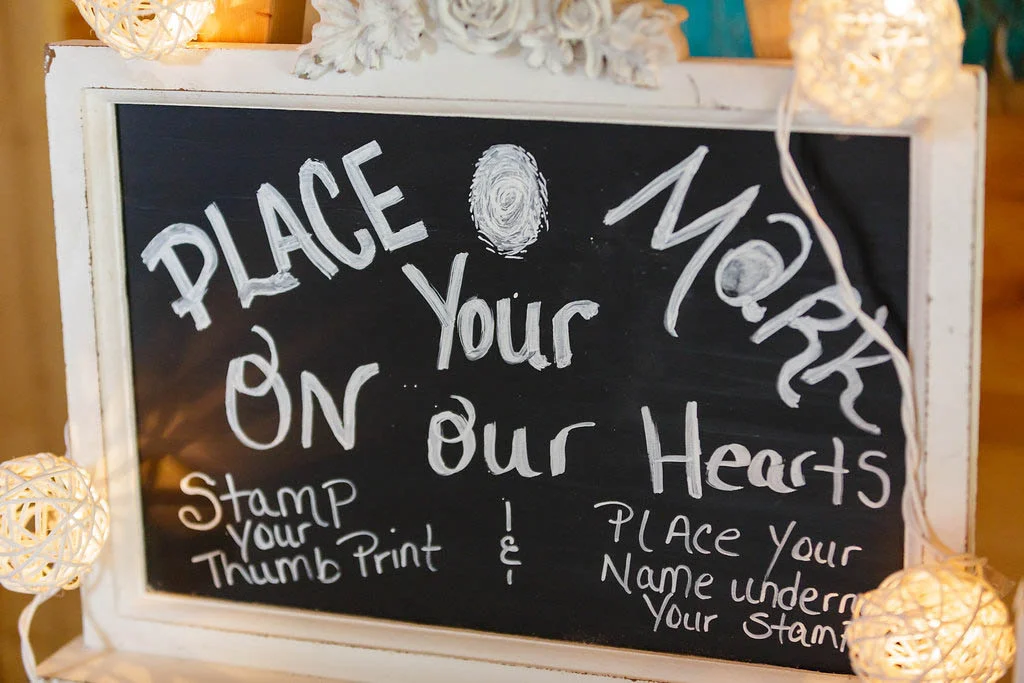 PLACE Your MARK
ON Our Hearts
Stamp
Your
Thumb Print
&
PlAce Your
Name undern
Your Stamp